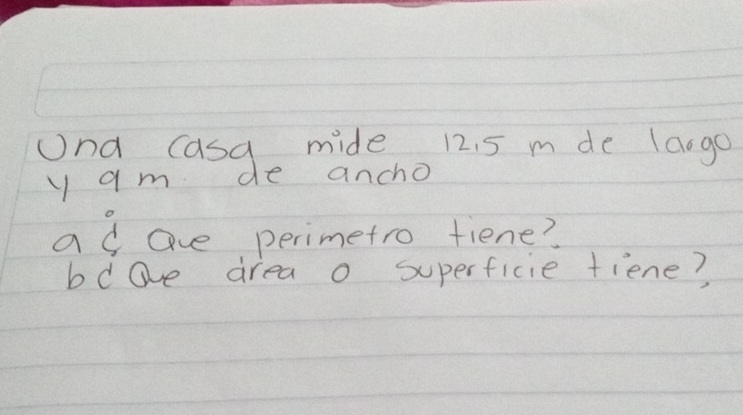 Una casa mide 12,5 m de largo
y 9m de ancho
a ¿ Que perimetro tiene?
b ¿ Que área o superficie tiene?